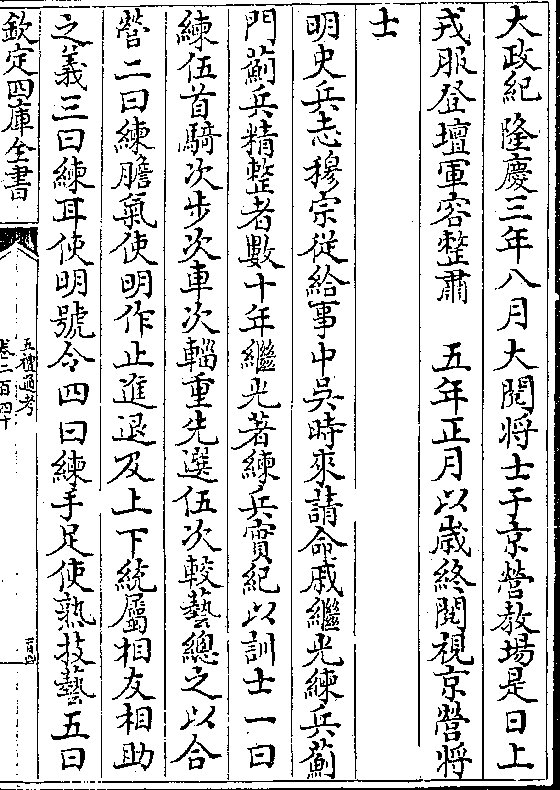 大政紀隆慶三年八月大閱將士于京營教場是日上
戎服登壇軍容整肅　五年正月以歲終閱視京營將
士
明史兵志穆宗從給事中吳時來請命戚繼光練兵薊
門薊兵精整者數十年繼光著練兵實紀以訓士一曰
練伍首騎次步次車次輜重先選伍次較藝總之以合
營二曰練膽氣使明作止進退及上下統屬相友相助
之義三曰練耳使明號令四曰練手足使熟技藝五曰
欽定四庫全書
五禮通考
卷二百四十